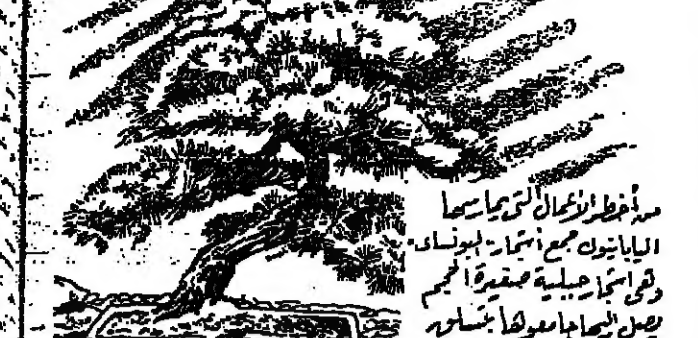 من أخطر الأعمال التي يمارسها
اليابانيون جمع أشجار البونساى
وهى أشجار جبلية صغيرة الحجم
يصل اليها جامعوها بتسلق